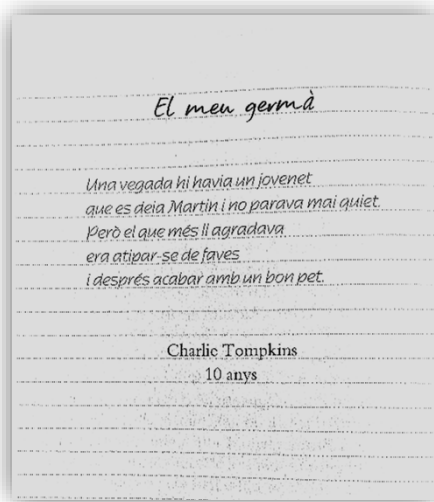 El meu germà
Una vegada hi havia un jovenet
que es deia Martin i no parava mai quiet.
Però el que més li agradava
era atipar-se de faves
i després acabar amb un bon pet.
Charlie Tompkins
10 anys